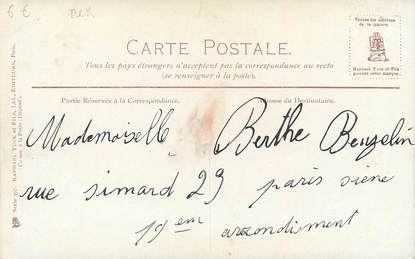 6 €
TUCK
Toutes les éditions
de la maison
Raphael Tuck et Fils
portent cette marque.
CARTE POSTALE.
Tous les pays étrangers n'acceptent pas la correspondance au recto
(se renseigner à la poste).
Partie Réservée à la Correspondance.
Adresse du Destinataire.
Mademoiselle Berthe Benzelin
rue simard 29 paris siène
19em arrondisment
RAPHAEL TUCK ET FILS, LTD, EDITEURS, Paris.